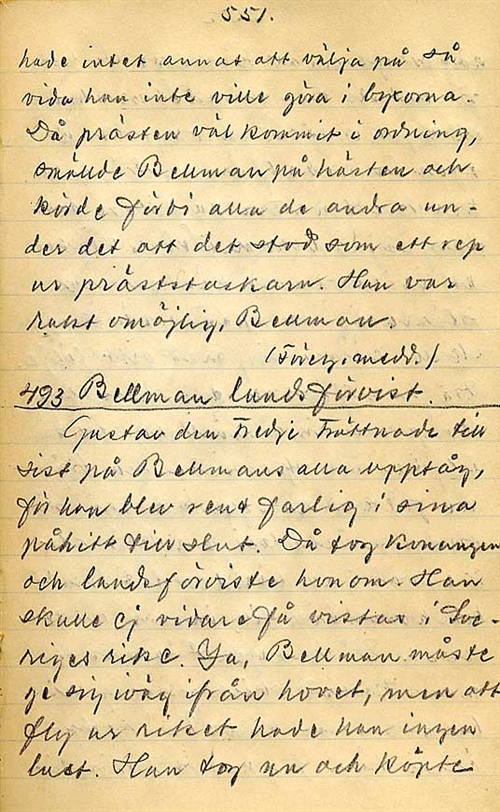 551.
hade intet annat att välja på så
vida han inte ville göra i byxorna.
Då prästen väl kommit i ordning,
smällde Bellman på hästen och
körde förbi alla de andra un-
der det att det stod som ett rep
ur präststaskarn. Han var
rakt omöjlig, Bellman.
(Föreg. medd.)
493 Bellman landsförvist.
Gustav den Tredje tröttnade till
sist på Bellmans alla upptåg,
för han blev rent farlig i sina
påhitt till slut. Då tog konungen
och landsförviste honom. Han
skulle ej vidare få vistas i Sve-
riges rike. Ja, Bellman måste
ge sig iväg ifrån hovet, men att
fly ur riket hade han ingen
lust. Han tog nu och köpte